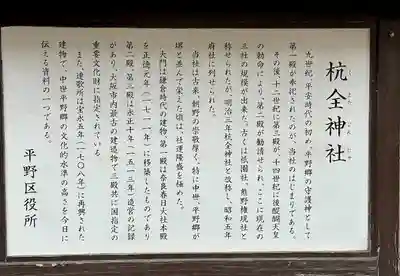 杭全神社
くまたじんじゃ
九世紀、平安時代の初め、平野郷の守護神として
第一殿が奉祀されたのが、当社のはじまりである。
その後、十二世紀に第三殿が、十四世紀に後醍醐天皇
の勅命により、第二殿が勧請せられ、ここに現在の
三社の規模が出来た。古くは祇園社、熊野権現社と
称せられたが、明治三年杭全神社と改称し、昭和五年
府社に列せられた。
当社は古来、朝野の崇敬厚く、特に中世、平野郷が
堺と並んで栄えた頃は、社運隆盛を極めた。
大門は鎌倉時代の建物、第一殿は奈良春日大社本殿
を正徳元年（一七一一年）に移築したものであり、
第二殿、第三殿は永正十年（一五一三年）造営の記録
があり、大阪市内最古の建造物で三殿共に国指定の
重要文化財に指定されている。
また、連歌所は宝永五年（一七〇八年）に再興された
建物で、中世平野郷の文化的水準の高さを今日に
伝える資料の一つである。
平野区役所